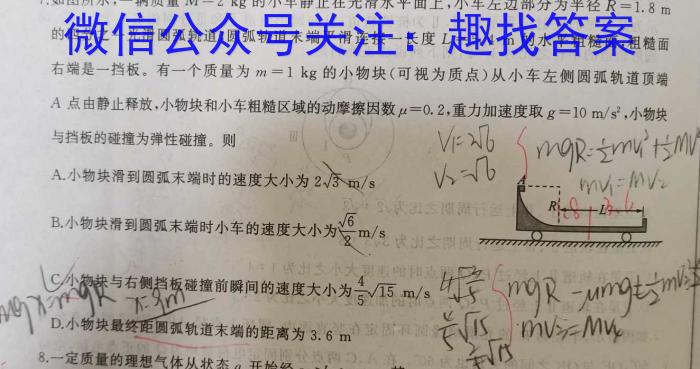 7.如图所示,一辆质量 M=2 kg 的小车静止在光滑水平面上,小车左边部分为半径 R=1.8 m
微信公众号关注：趣找答案
的四分之一光滑圆弧轨道,圆弧轨道末端平滑连接一长度 L 的水平粗糙面,粗糙面
右端是一挡板。有一个质量为 m=1 kg 的小物块(可视为质点)从小车左侧圆弧轨道顶端
A 点由静止释放,小物块和小车粗糙区域的动摩擦因数μ=0.2,重力加速度取 g=10 m/s²,小物块
与挡板的碰撞为弹性碰撞。则
V₁=2√6
V₂=√6
mgR=½mv₁²+½MV₂²
mv₁=MV₂
A.小物块滑到圆弧末端时的速度大小为 2√3 m/s
A
R
L
1.8
3.6
B.小物块滑到圆弧末端时小车的速度大小为√6/2 m/s
C.小物块与右侧挡板碰撞前瞬间的速度大小为4/5√15 m/s
mgR=μmgL+½mv₃²+½MV₄²
mv₃=MV₄
μmgx=mgR x=9m
4/5√15
2/5√15
D.小物块最终距圆弧轨道末端的距离为 3.6 m
8.一定质量的理想气体从状态 a 开始经